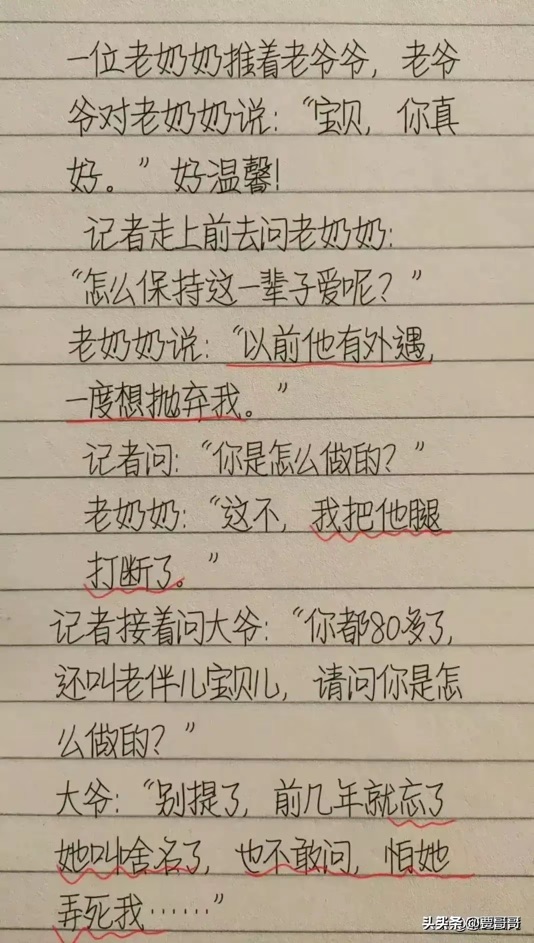 一位老奶奶推着老爷爷，老爷
爷对老奶奶说：“宝贝，你真
好。”好温馨！
记者走上前去问老奶奶：
“怎么保持这一辈子爱呢？”
老奶奶说：“以前他有外遇，
一度想抛弃我。”
记者问：“你是怎么做的？”
老奶奶：“这不，我把他腿
打断了。”
记者接着问大爷：“你都80多了，
还叫老伴儿宝贝儿，请问你是怎
么做的？”
大爷：“别提了，前几年就忘了
她叫啥名了，也不敢问，怕她
弄死我……”
头条@贾哥哥